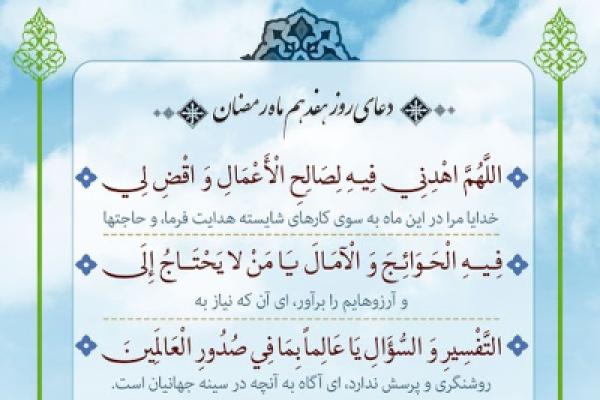 دعای روز هفدهم ماه رمضان
اللَّهُمَّ اهْدِنِي فِيهِ لِصَالِحِ الْأَعْمَالِ وَ اقْضِ لِي
خدایا مرا در این ماه به سوی کارهای شایسته هدایت فرما، و حاجتها
فِيهِ الْحَوَائِجَ وَ الْآمَالَ يَا مَنْ لا يَحْتَاجُ إِلَى
و آرزوهایم را برآور، ای آن که نیاز به
التَّفْسِيرِ وَ السُّؤَالِ يَا عَالِماً بِمَا فِي صُدُورِ الْعَالَمِينَ
روشنگری و پرسش ندارد، ای آگاه به آنچه در سینه جهانیان است.